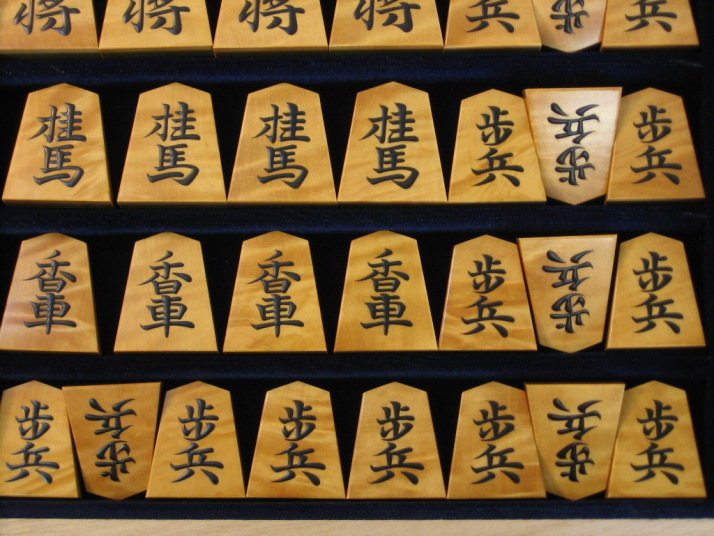 将 将 将 将 歩兵 歩兵 歩兵
桂馬 桂馬 桂馬 桂馬 歩兵 歩兵 歩兵
香車 香車 香車 香車 歩兵 歩兵 歩兵
歩兵 歩兵 歩兵 歩兵 歩兵 歩兵 歩兵 歩兵